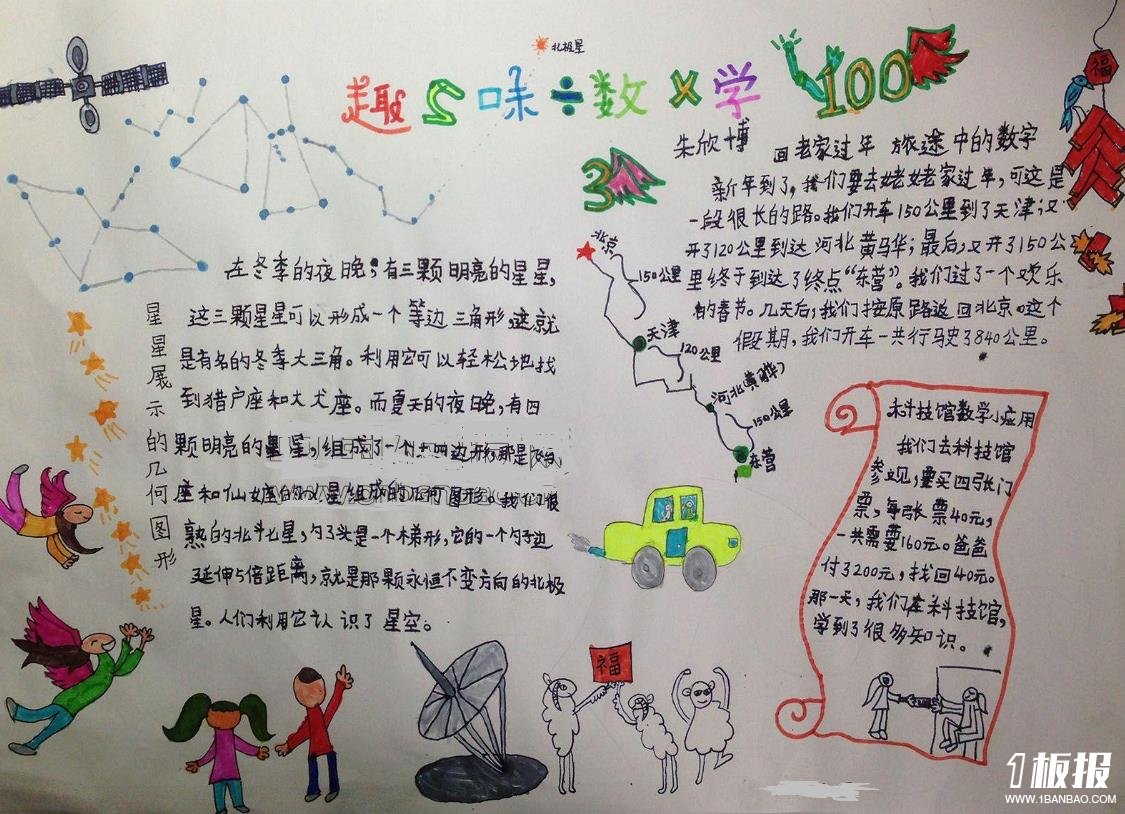 北极星
趣2味÷数×学
100
福
朱欣博
3
回老家过年 旅途中的数字
新年到了,我们要去姥姥老家过年,可这是
一段很长的路。我们开车150公里到了天津,又
开了120公里到达河北黄马华;最后,又开了150公
里终于到达了终点“东营”。我们过了一个欢乐
的春节。几天后,我们按原路返回北京。这个
假期,我们开车一共行马史了840公里。
北京
150公里
天津
120公里
河北(黄骅)
150公里
东营
星星展示的几何图形
在冬季的夜晚,有三颗明亮的星星,
这三颗星星可以形成一个等边三角形。这就
是有名的冬季大三角。利用它可以轻松地找
到猎户座和大犬座。而夏天的夜晚,有四
颗明亮的星星,组成了一个四边形,那是
座和仙女座的星组成的几何图形。我们很
熟的北斗七星,勺子头是一个梯形,它的一个勺子边
延伸5倍距离,就是那颗永恒不变方向的北极
星。人们利用它认识了星空。
科技馆数学小应用
我们去科技馆
参观,要买四张门
票,每张票40元,
一共需要160元。爸爸
付了200元,找回40元。
那一天,我们在科技馆,
学到了很多知识。
福
1板报
WWW.1BANBAO.COM